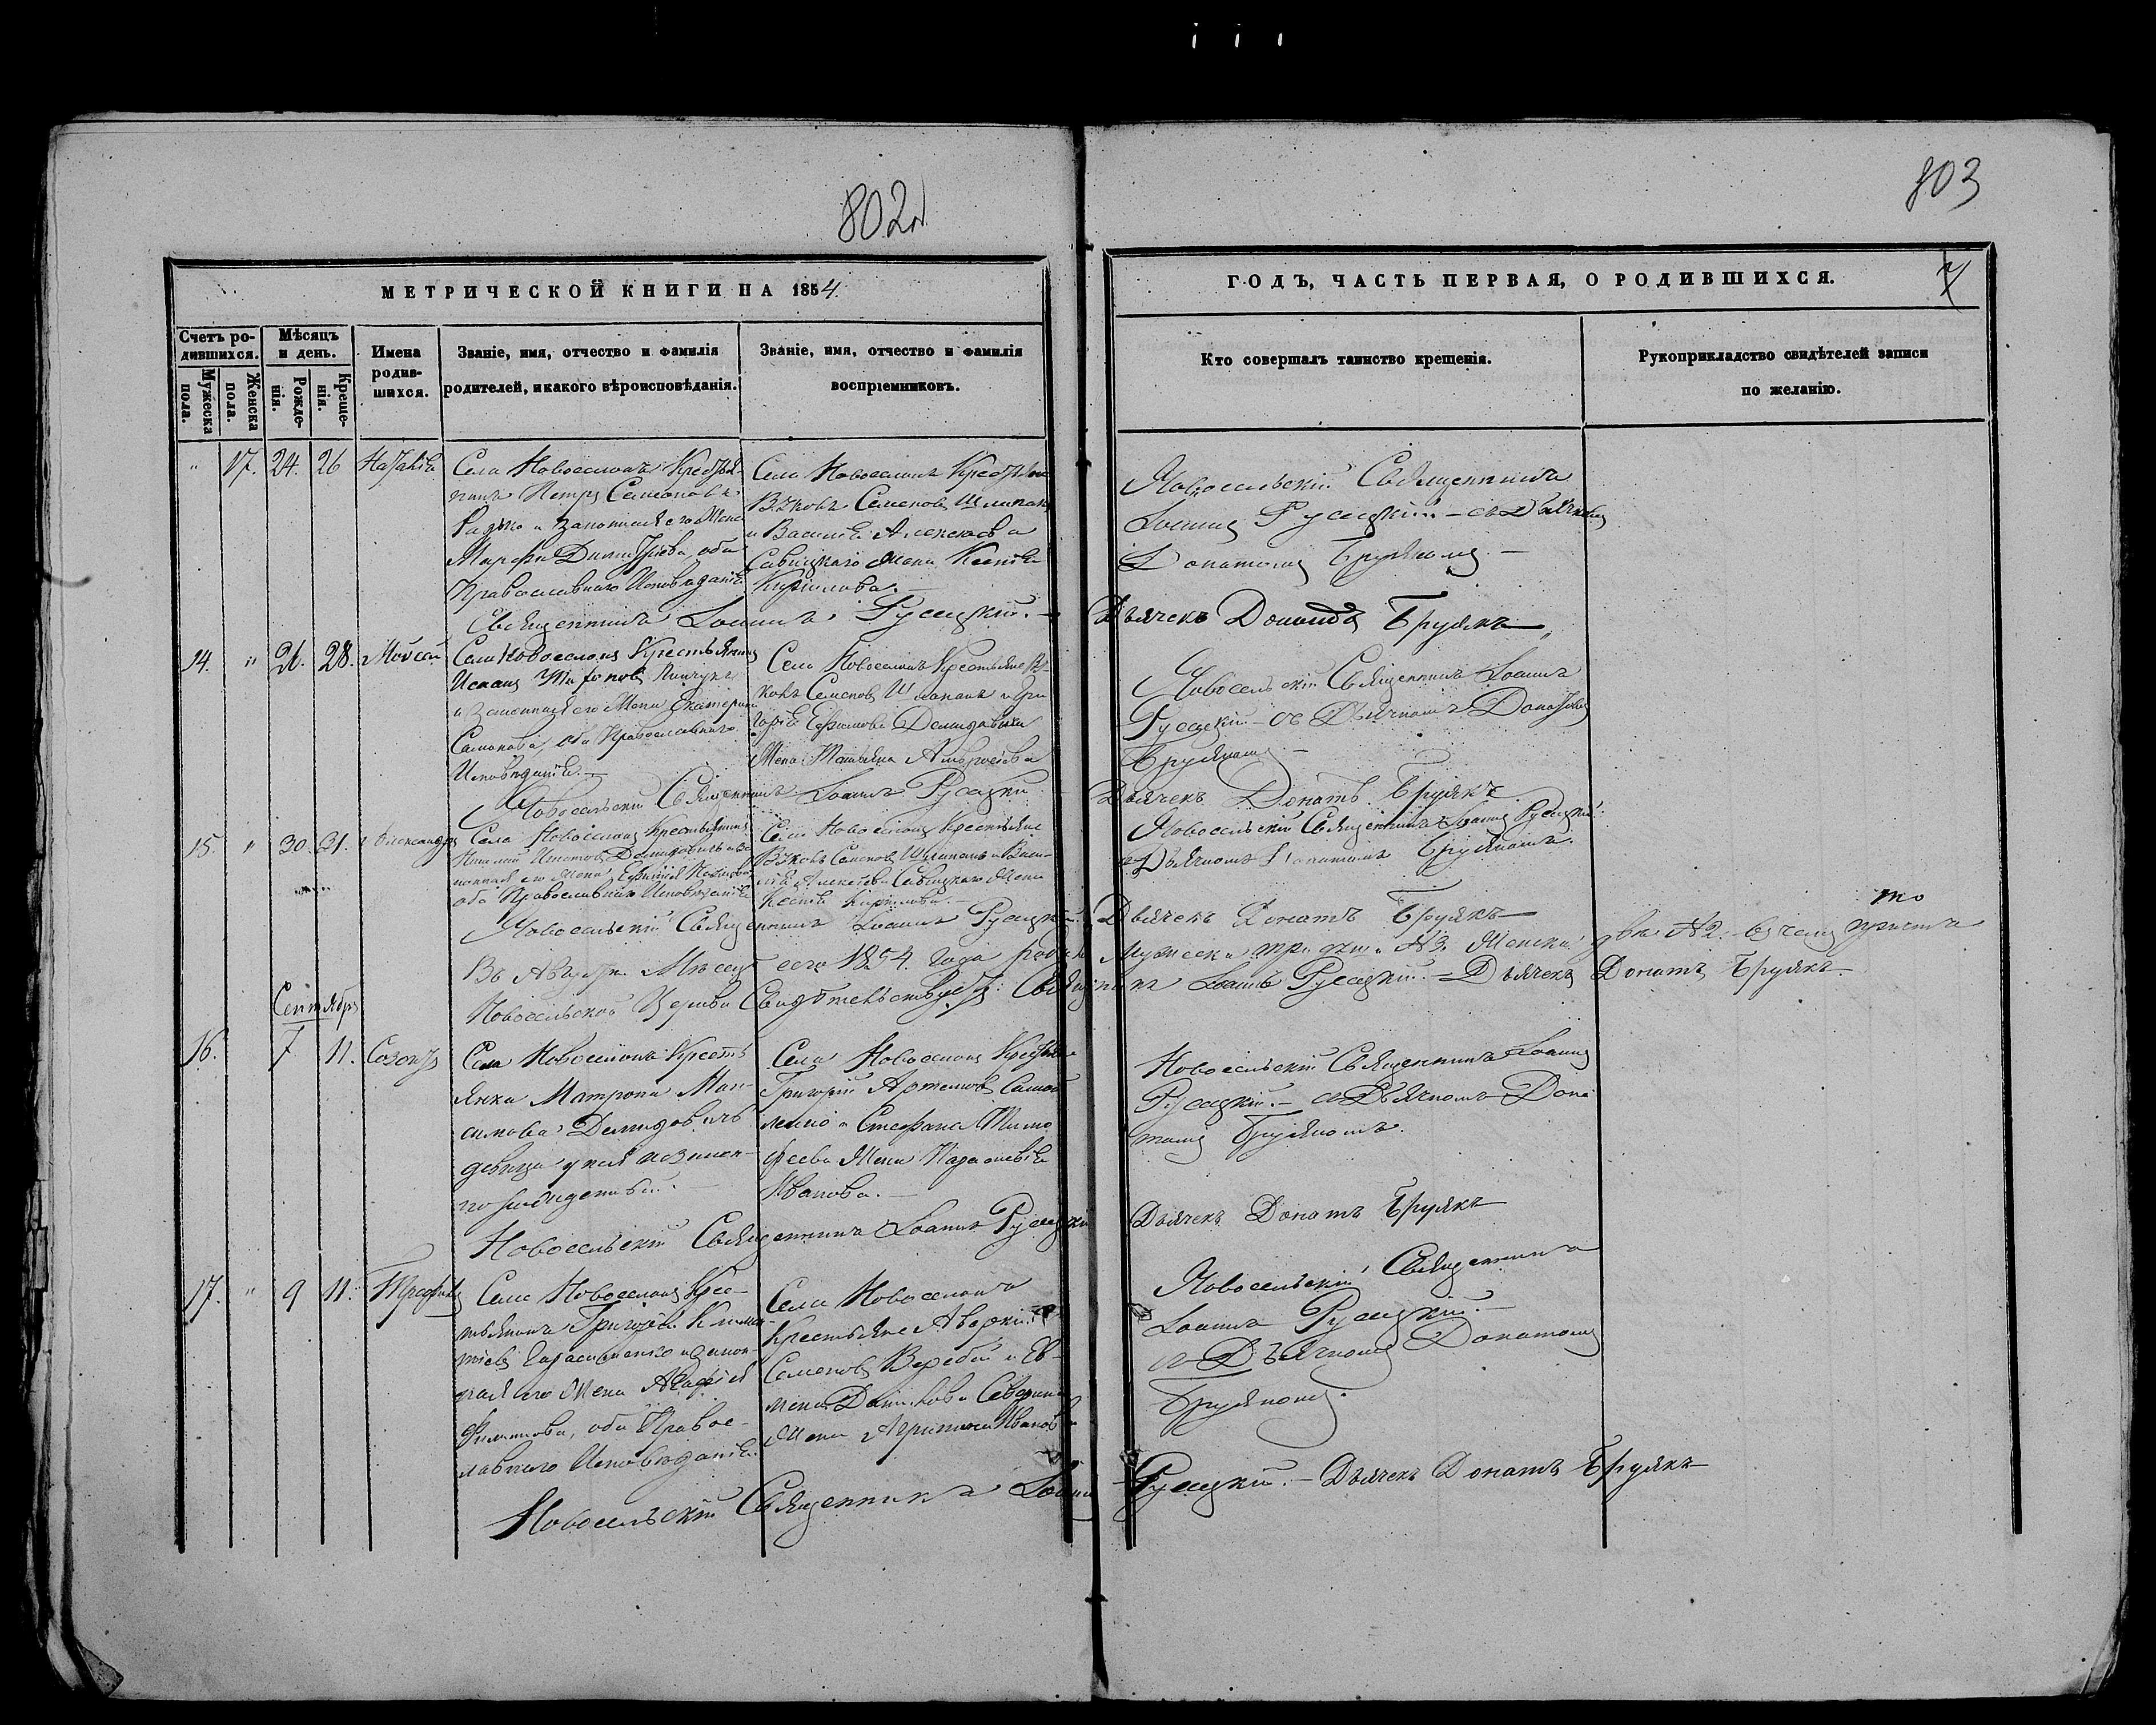 802
803
МЕТРИЧЕСКОЙ КНИГИ НА 1854.
ГОДЪ, ЧАСТЬ ПЕРВАЯ, О РОДИВШИХСЯ.
Счетъ ро-
дившихся.
Мужеска
пола.
Женска
пола.
Мѣсяцъ
и день.
Рожде-
нія.
Креще-
нія.
Имена
родив-
шихся.
Званіе, имя, отчество и фамилія
родителей, и какого вѣроисповѣданія.
Званіе, имя, отчество и фамилія
воспріемниковъ.
Кто совершалъ таинство крещенія.
Рукоприкладство свидѣтелей записи
по желанію.
" 17. 24. 26 Наталія
Села Новоселокъ Крестья-
нинъ Петръ Семеновъ
и законная его Жена
Марфа Димитріева, оба
Православнаго Исповѣданія
Села Новоселокъ Крестьяне
Семеновъ Шлапакъ
и Василія Алексѣева
Савицкаго Жена Ксенія
Кирилова.
Новосельскій Священникъ
Іоаннъ Русецкій - съ Дьячкомъ
Донатомъ Брулкомъ
Священникъ Іоаннъ Русецкій. - Дьячекъ Донатъ Брулкъ
14. " 26. 28. Мойсей
Села Новоселокъ Крестьянинъ
и законная его Жена Екатерина
Семенова, оба Православнаго
Исповѣданія.
Села Новоселокъ Крестьяне
Семеновъ Шлапакъ и Гри-
горія Ефимова Демидовича
Жена Татьяна Амвросіева
Новосельскій Священникъ Іоаннъ
Русецкій - съ Дьячкомъ Донатомъ
Брулкомъ -
Новосельскій Священникъ Іоаннъ Русецкій Дьячекъ Донатъ Брулкъ
15. " 30. 31. Александръ
Села Новоселокъ Крестьянинъ
Игнатовъ Демидовичъ и за-
конная его Жена
оба Православнаго Исповѣданія
Села Новоселокъ Крестьяне
Семеновъ Шлапакъ и Васи-
лія Алексѣева Савицкаго Жена
Ксенія Кирилова. -
Новосельскій Священникъ Іоаннъ Русецкій
съ Дьячкомъ Донатомъ Брулкомъ.
Новосельскій Священникъ Іоаннъ Русецкій. Дьячекъ Донатъ Брулкъ
Въ Августѣ Мѣсяцѣ сего 1854. года Мужеска три № 3. Женска двѣ № 2. - въ чемъ причтъ
Новосельской Церкви Свидѣтельствуетъ: Священникъ Іоаннъ Русецкій. - Дьячекъ Донатъ Брулкъ. -
Сентябрь
16. 7 11. Созонтъ
Села Новоселокъ Кресть-
янка Матрона Мак-
симова Демидовичъ
девица
Села Новоселокъ Крестьяне
Григорій Артемовъ
и Стефана Тимо
феева Жена Параскевія
Иванова. -
Новосельскій Священникъ Іоаннъ
Русецкій. - съ Дьячкомъ Дона
томъ Брулкомъ.
Новосельскій Священникъ Іоаннъ Русецкій Дьячекъ Донатъ Брулкъ
17. " 9 11.
Села Новоселокъ Крес-
тьянинъ Григорій Климен-
тіевъ Герасименко и закон-
ная его Жена Агафія
Филипова, оба Правос-
лавнаго Исповѣданія.
Села Новоселокъ
Крестьяне Аверкій
Семеновъ Веребій и
Жена Агрипина Иванова
Новосельскій Священникъ
Іоаннъ Русецкій. -
съ Дьячкомъ Донатомъ
Брулкомъ.
Новосельскій Священникъ Іоаннъ Русецкій. - Дьячекъ Донатъ Брулкъ